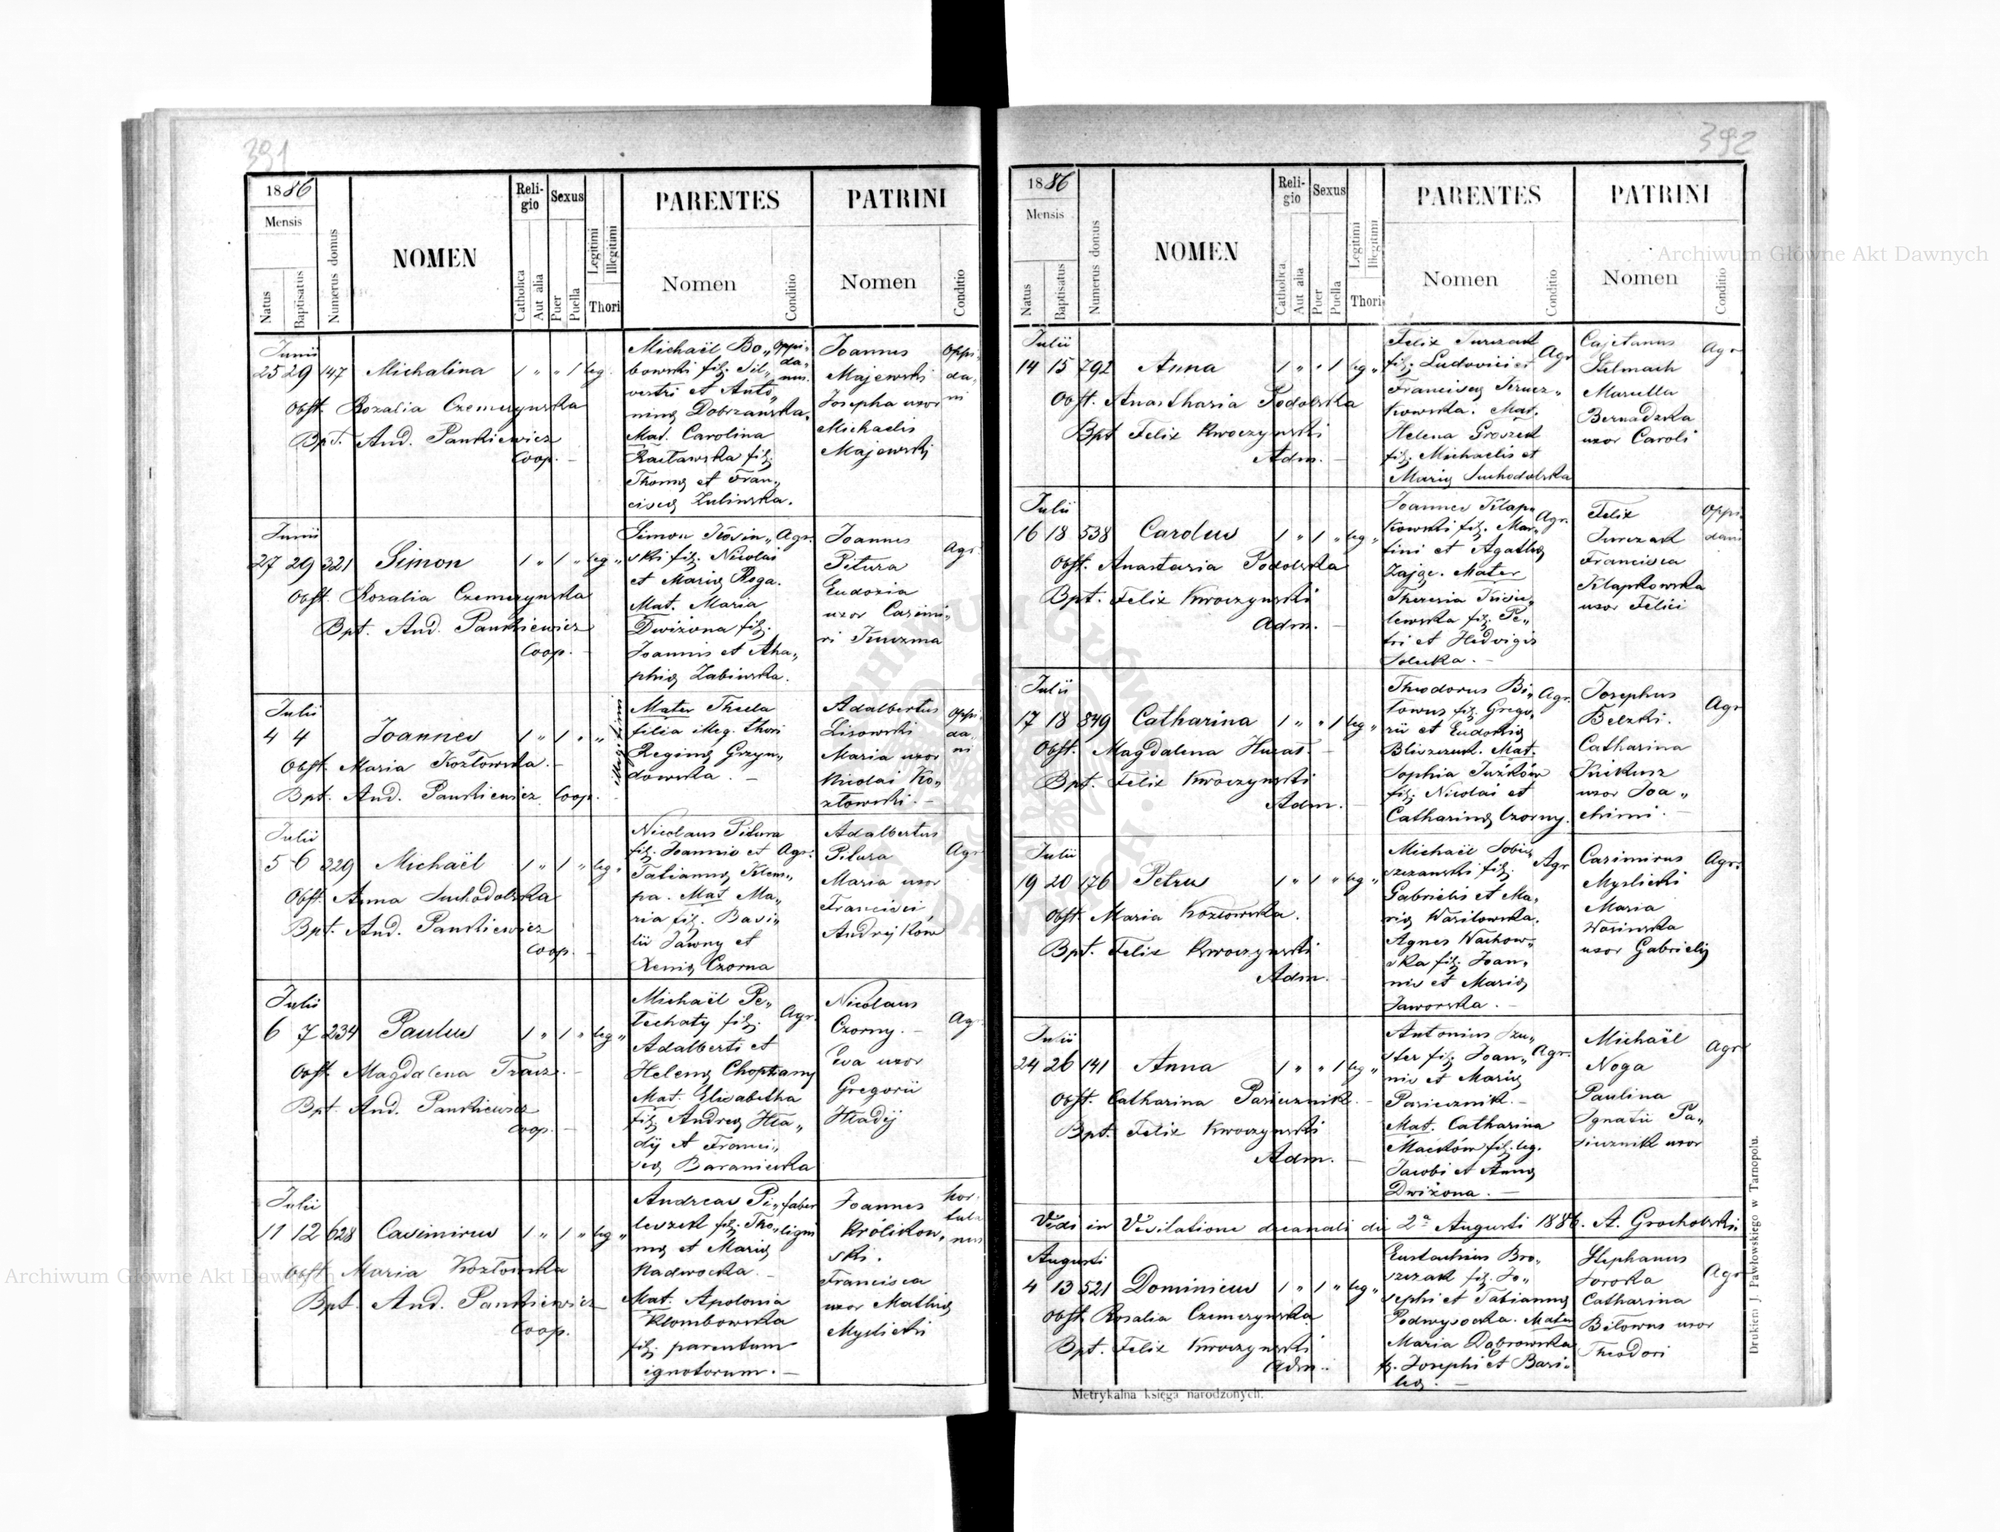 391
1886
Mensis
Natus
Baptisatus
Numerus domus
NOMEN
Religio
Catholica
Aut alia
Sexus
Puer
Puella
Legitimi
Illegitimi
Thori
PARENTES
Nomen
Conditio
PATRINI
Nomen
Conditio
Junii
25 29 147 Michalina 1 " " 1 leg.
Obst. Rozalia Czemerynska
Bpt. And. Pankiewicz
Coop. —
Michaël Bo„
bowski filj. Sil„
vestri et Anto„
ninæ Dobrzanska.
Mat. Carolina
Racławska filj.
Thomæ et Fran„
ciscæ Zulinska.
Oppi„
da„
nus.
Joannes
Majewski
Josepha uxor
Michaelis
Majewski
Oppi„
da„
ni
Junii
27 29 321 Simon 1 " 1 " leg "
Obst. Rozalia Czemerynska
Bpt. And. Pankiewicz
Coop. —
Simon Kosin„
ski filj. Nicolai
et Mariæ Roga.
Mat. Maria
Dwiżona filj.
Joannis et Aha„
phiæ Zabinska.
Agr.
Joannes
Pitura
Eudoxia
uxor Casimi„
ri Kuczma
Agr.
Julii
4 4 Joannes 1 " 1 " " illegitimi
Obst. Maria Kozłowska. —
Bpt. And. Pankiewicz Coop. —
Mater Thecla
filia illeg. thori
Reginæ Grzyn„
dowska. —
Adalbertus
Lisowski
Maria uxor
Nicolai Ko„
złowski. —
Oppi„
da„
ni
Julii
5 6 329 Michaël 1 " 1 " leg "
Obst. Anna Suchodolska
Bpt. And. Pankiewicz
Coop. —
Nicolaus Pitura
filj. Joannis et
Tatiannæ Klem„
pa. Mat Ma„
ria filj. Basi„
lii Jawny et
Xeniæ Czorna
Agr.
Adalbertus
Pitura
Maria uxor
Francisci
Andrejków
Agr.
Julii
6 7 234 Paulus 1 " 1 " leg "
Obst. Magdalena Tracz. —
Bpt. And. Pankiewicz
Coop. —
Michaël Pe„
techaty filj.
Adalberti et
Helenæ Choptany
Mat. Elisabetha
filj. Andreæ Hła„
dÿ et Franci„
scæ Baraniecka
Agr.
Nicolaus
Czorny. —
Eva uxor
Gregorii
Hładÿ
Agr.
Julii
11 12 628 Casimirus 1 " 1 " leg "
Obst. Maria Kozłowska
Bpt. And. Pankiewicz
Coop.
Andreas Pi„
leszek filj. Tho„
mæ et Mariæ
Nadwocka. —
Mat. Apolonia
Kłombowska
filj. parentum
ignotorum. —
faber
ligni
Joannes
Królikow„
ski.
Francisca
uxor Mathiæ
Myslicki
hor„
tula
nus
392
1886
Mensis
Natus
Baptisatus
Numerus domus
NOMEN
Religio
Catholica
Aut alia
Sexus
Puer
Puella
Legitimi
Illegitimi
Thori
PARENTES
Nomen
Conditio
PATRINI
Nomen
Conditio
Julii
14 15 792 Anna 1 " " 1 leg "
Obst. Anasthasia Podolska
Bpt Felix Kwoczynski
Adm. —
Felix Jurczak
filj. Ludovici et
Franciscæ Krucz„
kowska. Mat.
Helena Groszek
filj. Michaelis et
Mariæ Suchodolska
Agr
Cajetanus
Szlmach
Marcella
Bernadzka
uxor Caroli
Agr
Julii
16 18 538 Carolus 1 " 1 " leg "
Obst. Anastasia Podolska
Bpt. Felix Kwoczynski
Adm. —
Joannes Kłap„
kowski filj. Mar„
tini et Agathæ
Zając. Mater
Theresia Kisie„
lewska filj. Pe„
tri et Hedvigis
Soluka. —
Agr.
Felix
Jurczak
Francisca
Kłapkowska
uxor Felici
Oppi
dani
Julii
17 18 849 Catharina 1 " " 1 leg "
Obst. Magdalena Huzas. —
Bpt. Felix Kwoczynski
Adm. —
Theodorus Bi„
lowus filj. Grego„
rii et Eudokiæ
Bliszczuk. Mat.
Sophia Juzków
filj. Nicolai et
Catharinæ Czorny.
Agr.
Josephus
Belzki.
Catharina
Kukusz
uxor Joa„
chimi. —
Agr
Julii
19 20 176 Petrus 1 " 1 " leg "
Obst. Maria Kozłowska.
Bpt. Felix Kwoczynski
Adm. —
Michaël Sobie„
szczanski filj.
Gabrielis et Ma„
riæ Wasilowska.
Agnes Wachow„
ska filj. Joan„
nis et Mariæ
Jaworska. —
Agr
Casimirus
Myslicki
Maria
Wasinska
uxor Gabrielis
Agr.
Julii
24 26 141 Anna 1 " " 1 leg "
Obst. Catharina Pasiecznik. —
Bpt. Felix Kwoczynski
Adm. —
Antonius Szu„
ster filj. Joan„
nis et Mariæ
Pasiecznik. —
Mat. Catharina
Maćków filj. leg.
Jacobi et Annæ
Dwiżona. —
Agr.
Michaël
Noga
Paulina
Ignatii Pa„
siecznik uxor
Agr
Vidi in Visitatione decanali die 2ª Augusti 1886. A. Grocholski
Augusti
4 13 521 Dominicus 1 " 1 " leg "
Obst. Rosalia Czemerynska
Bpt. Felix Kwoczynski
Adm. —
Eustachius Bro„
szczak filj. Jo„
sephi et Tatiannæ
Podwysocka. Mater
Maria Dąbrowska
f. Josephi et Basi„
leæ. —
Stephanus
Soroka
Catharina
Bilowus uxor
Theodori
Agr
Metrykalna księga narodzonych.
Drukiem J. Pawłowskiego w Tarnopolu.
Archiwum Główne Akt Dawnych
Archiwum Główne Akt Dawnych
ARCHIWUM GŁÓWNE AKT DAWNYCH